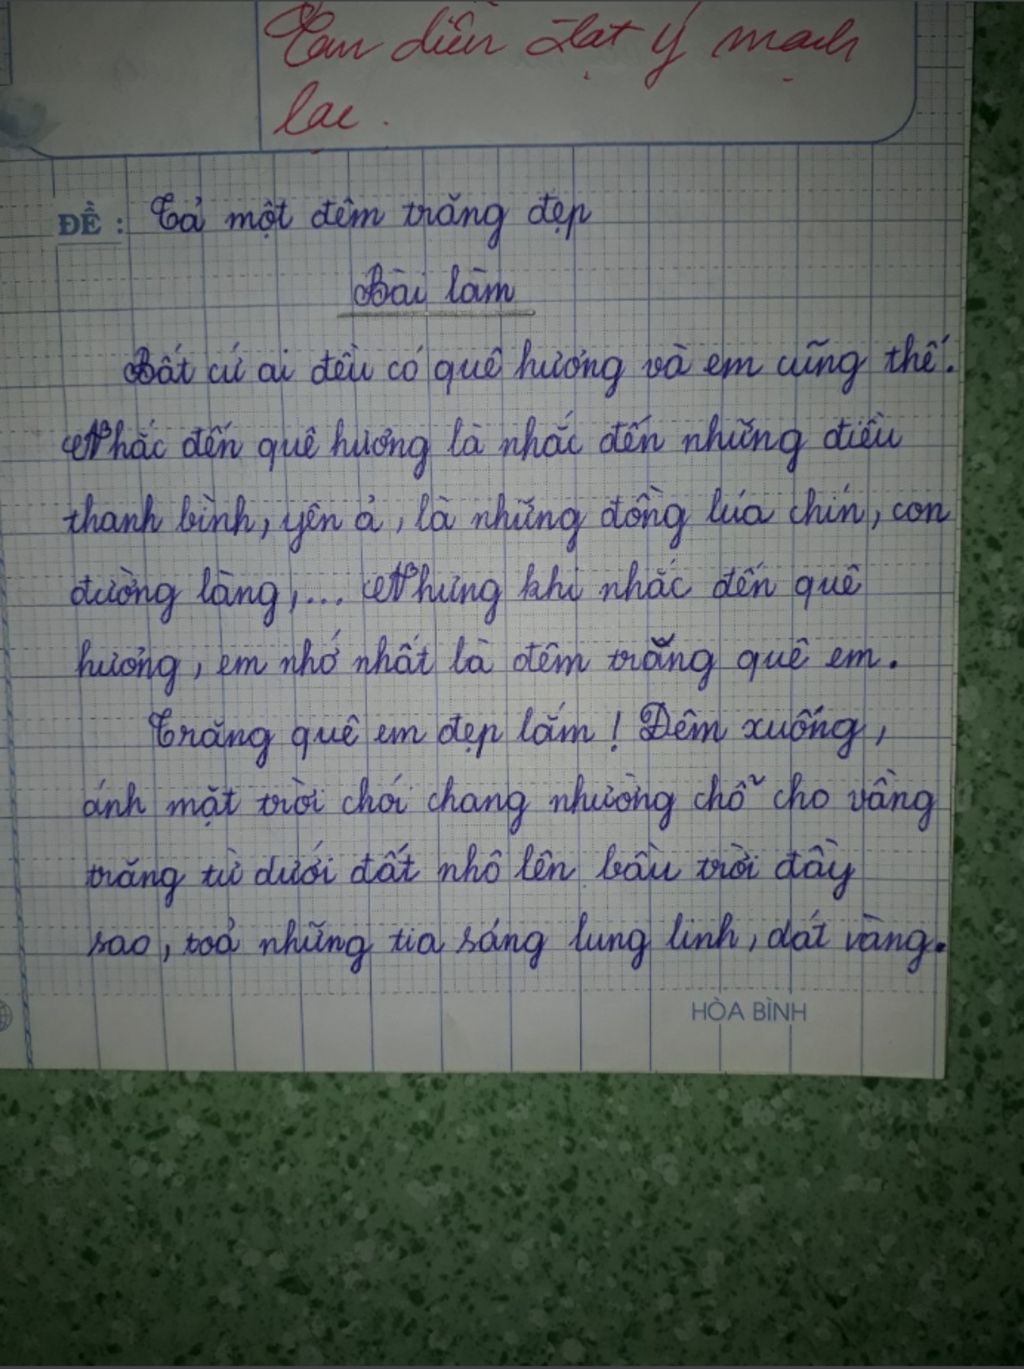 Em diễn đạt ý mạch
lạc.
ĐỀ : Tả một đêm trăng đẹp
Bài làm
Bất cứ ai đều có quê hương và em cũng thế.
Nhắc đến quê hương là nhắc đến những điều
thanh bình, yên ả, là những đồng lúa chín, con
đường làng,... Nhưng khi nhắc đến quê
hương, em nhớ nhất là đêm trăng quê em.
Trăng quê em đẹp lắm! Đêm xuống,
ánh mặt trời chói chang nhường chỗ cho vầng
trăng từ dưới đất nhô lên bầu trời đầy
sao, toả những tia sáng lung linh, dát vàng.
HÒA BÌNH